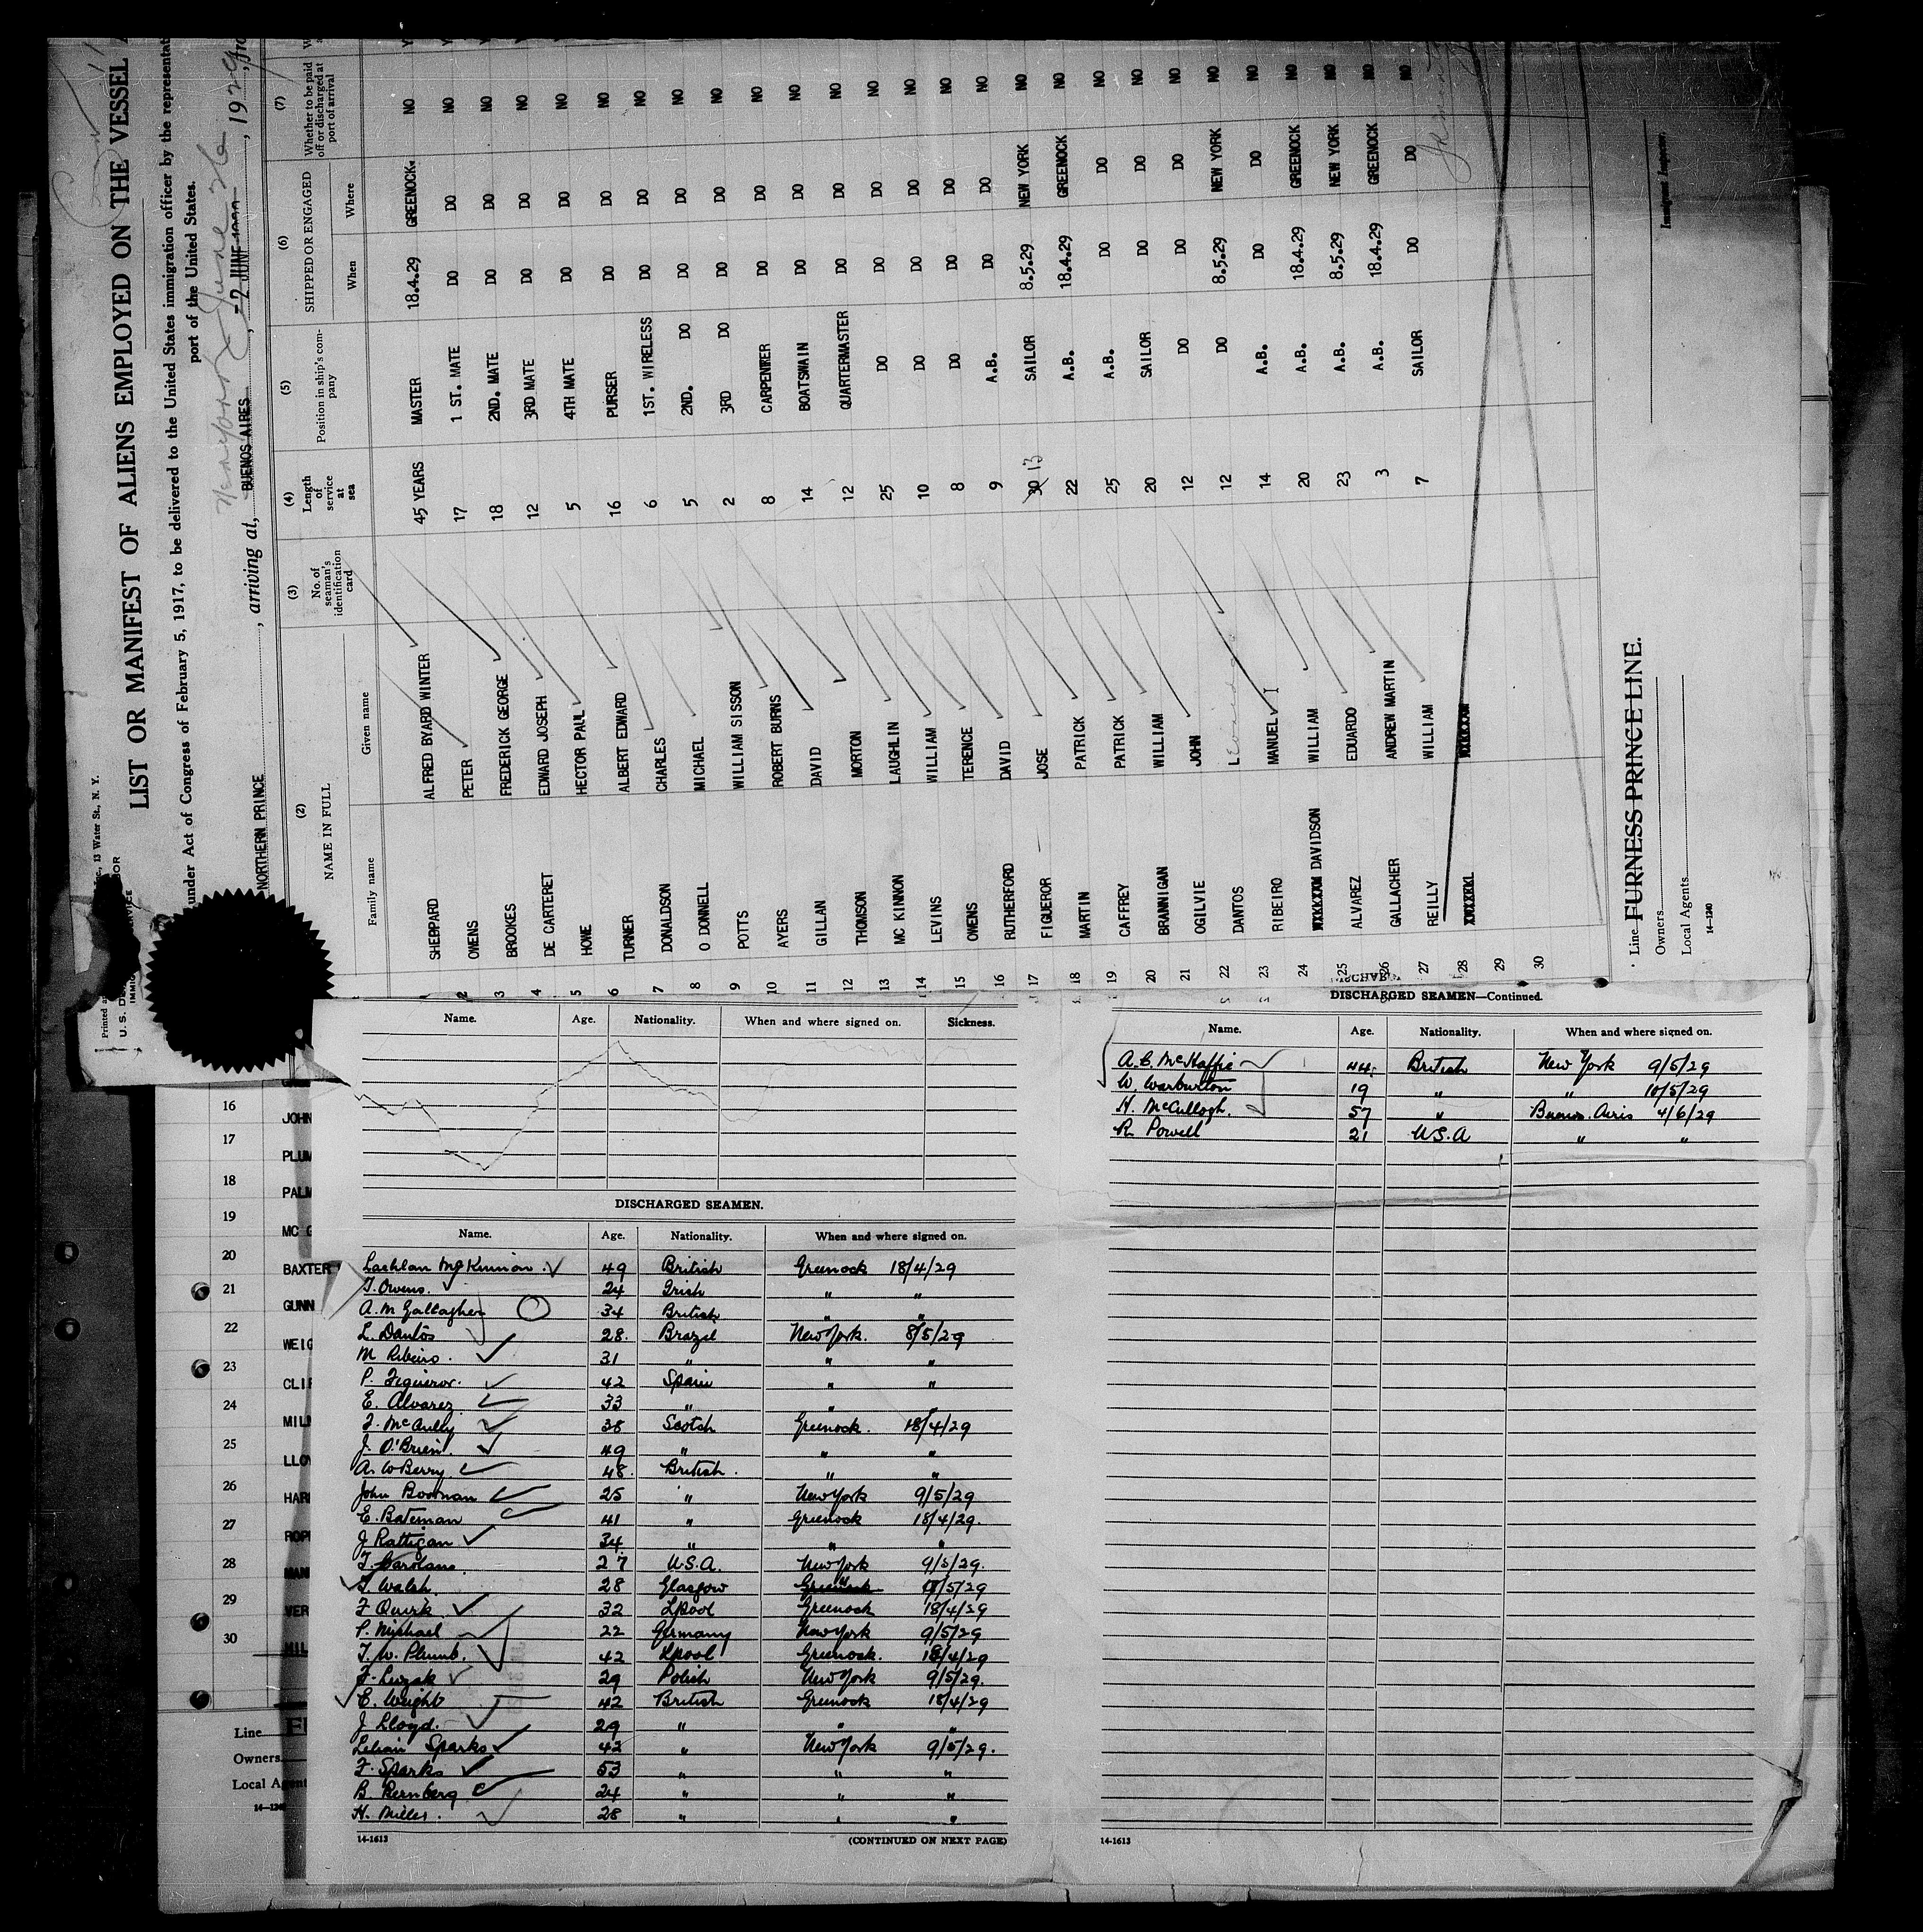 Printed
Inc., 13 Water St., N. Y.
LIST OR MANIFEST OF ALIENS EMPLOYED ON THE VESSEL
under Act of Congress of February 5, 1917, to be delivered to the United States immigration officer by the representat
port of the United States.
NORTHERN PRINCE, arriving at, BUENOS AIRES, -2 JUNE June 26, 1929, fro
(2) NAME IN FULL (3) No. of seaman's identification card (4) Length of service at sea (5) Position in ship's company (6) SHIPPED OR ENGAGED (7) Whether to be paid off or discharged at port of arrival
Family name Given name When Where
SHEPPARD ALFRED BYARD WINTER 45 YEARS MASTER 18.4.29 GREENOCK. NO
2 OWENS PETER 17 1 ST. MATE DO DO NO
3 BROOKES FREDERICK GEORGE 18 2ND. MATE DO DO NO
4 DE CARTERET EDWARD JOSEPH 12 3RD MATE DO DO NO
5 HOWE HECTOR PAUL 5 4TH MATE DO DO NO
6 TURNER ALBERT EDWARD 16 PURSER DO DO NO
7 DONALDSON CHARLES 6 1ST. WIRELESS DO DO NO
8 O DONNELL MICHAEL 5 2ND. DO DO DO NO
9 POTTS WILLIAM SISSON 2 3RD DO DO DO NO
10 AYERS ROBERT BURNS 8 CARPENTER DO DO NO
11 GILLAN DAVID 14 BOATSWAIN DO DO NO
12 THOMSON MORTON 12 QUARTERMASTER DO DO NO
13 MC KINNON LAUGHLIN 25 DO DO DO NO
14 LEVINS WILLIAM 10 DO DO DO NO
15 OWENS TERENCE 8 DO DO DO NO
16 RUTHERFORD DAVID 9 A.B. DO DO NO
17 FIGUEROR JOSE 30 13 SAILOR 8.5.29 NEW YORK NO
18 MARTIN PATRICK 22 A.B. 18.4.29 GREENOCK NO
19 CAFFREY PATRICK 25 A.B. DO DO NO
20 BRANNIGAN WILLIAM 20 SAILOR DO DO NO
21 OGILVIE JOHN 12 DO DO DO NO
22 DANTOS 12 DO 8.5.29 NEW YORK NO
23 RIBEIRO MANUEL 14 A.B. DO DO NO
24 DAVIDSON WILLIAM 20 A.B. 18.4.29 GREENOCK NO
25 ALVAREZ EDUARDO 23 A.B. 8.5.29 NEW YORK NO
26 GALLACHER ANDREW MARTIN 3 A.B. 18.4.29 GREENOCK NO
27 REILLY WILLIAM 7 SAILOR DO DO NO
28
29
30
Line FURNESS PRINCE LINE.
Owners
Local Agents
14-1240
Immigrant Inspector.
Name. Age. Nationality. When and where signed on. Sickness.
DISCHARGED SEAMEN.
Name. Age. Nationality. When and where signed on.
Lachlan McKinnon 49 British Greenock 18/4/29
T. Owens. 24 Irish " "
A. M Gallagher 34 British " "
L. Dantos 28. Brazil New York. 8/5/29
M Ribeiro. 31 " " "
P. Figueror. 42 Spain " "
E. Alvarez 33 " " "
J. McCully 38 Scotch Greenock. 18/4/29
J. O'Brien 49 " " "
A. W Berry 48. British. " "
John Bowman 25 " New York 9/5/29
E. Bateman 41 " Greenock 18/4/29.
J Rattigan 34 " " "
T. Carolans 27 U.S.A. New York 9/5/29.
T. Walsh. 28 Glasgow Greenock 18/5/29
F Quirk 32 Lpool Greenock 18/4/29
P. Michael 22 Germany New York 9/5/29
T. W. Plumb. 42 Lpool Greenock. 18/4/29
F. Luzak 29 Polish New York 9/5/29.
E. Weight 42 British Greenock 18/4/29
J. Lloyd. 29 " " "
Lilian Sparks 42 " New York 9/5/29.
F. Sparks 53 " " "
B. Bernberg 24 " " "
H. Miller. 28 " " "
14-1613 (CONTINUED ON NEXT PAGE)
DISCHARGED SEAMEN—Continued.
Name. Age. Nationality. When and where signed on.
A. C. McHaffie 44. British New York 9/5/29
W. Warburton 19 " " 10/5/29
H. McCullogh. 57 " Buenos Aeris 4/6/29
R. Powell 21 U.S.A " "
14-1613
16 JOHN
17 PLUM
18 PALM
19 MC G
20 BAXTER
21 GUNN
22 WEIG
23 CLIF
24 MILN
25 LLOY
26 HARR
27 ROPE
28 MANN
29 VER
30 MIL
Line
Owners
Local Agent